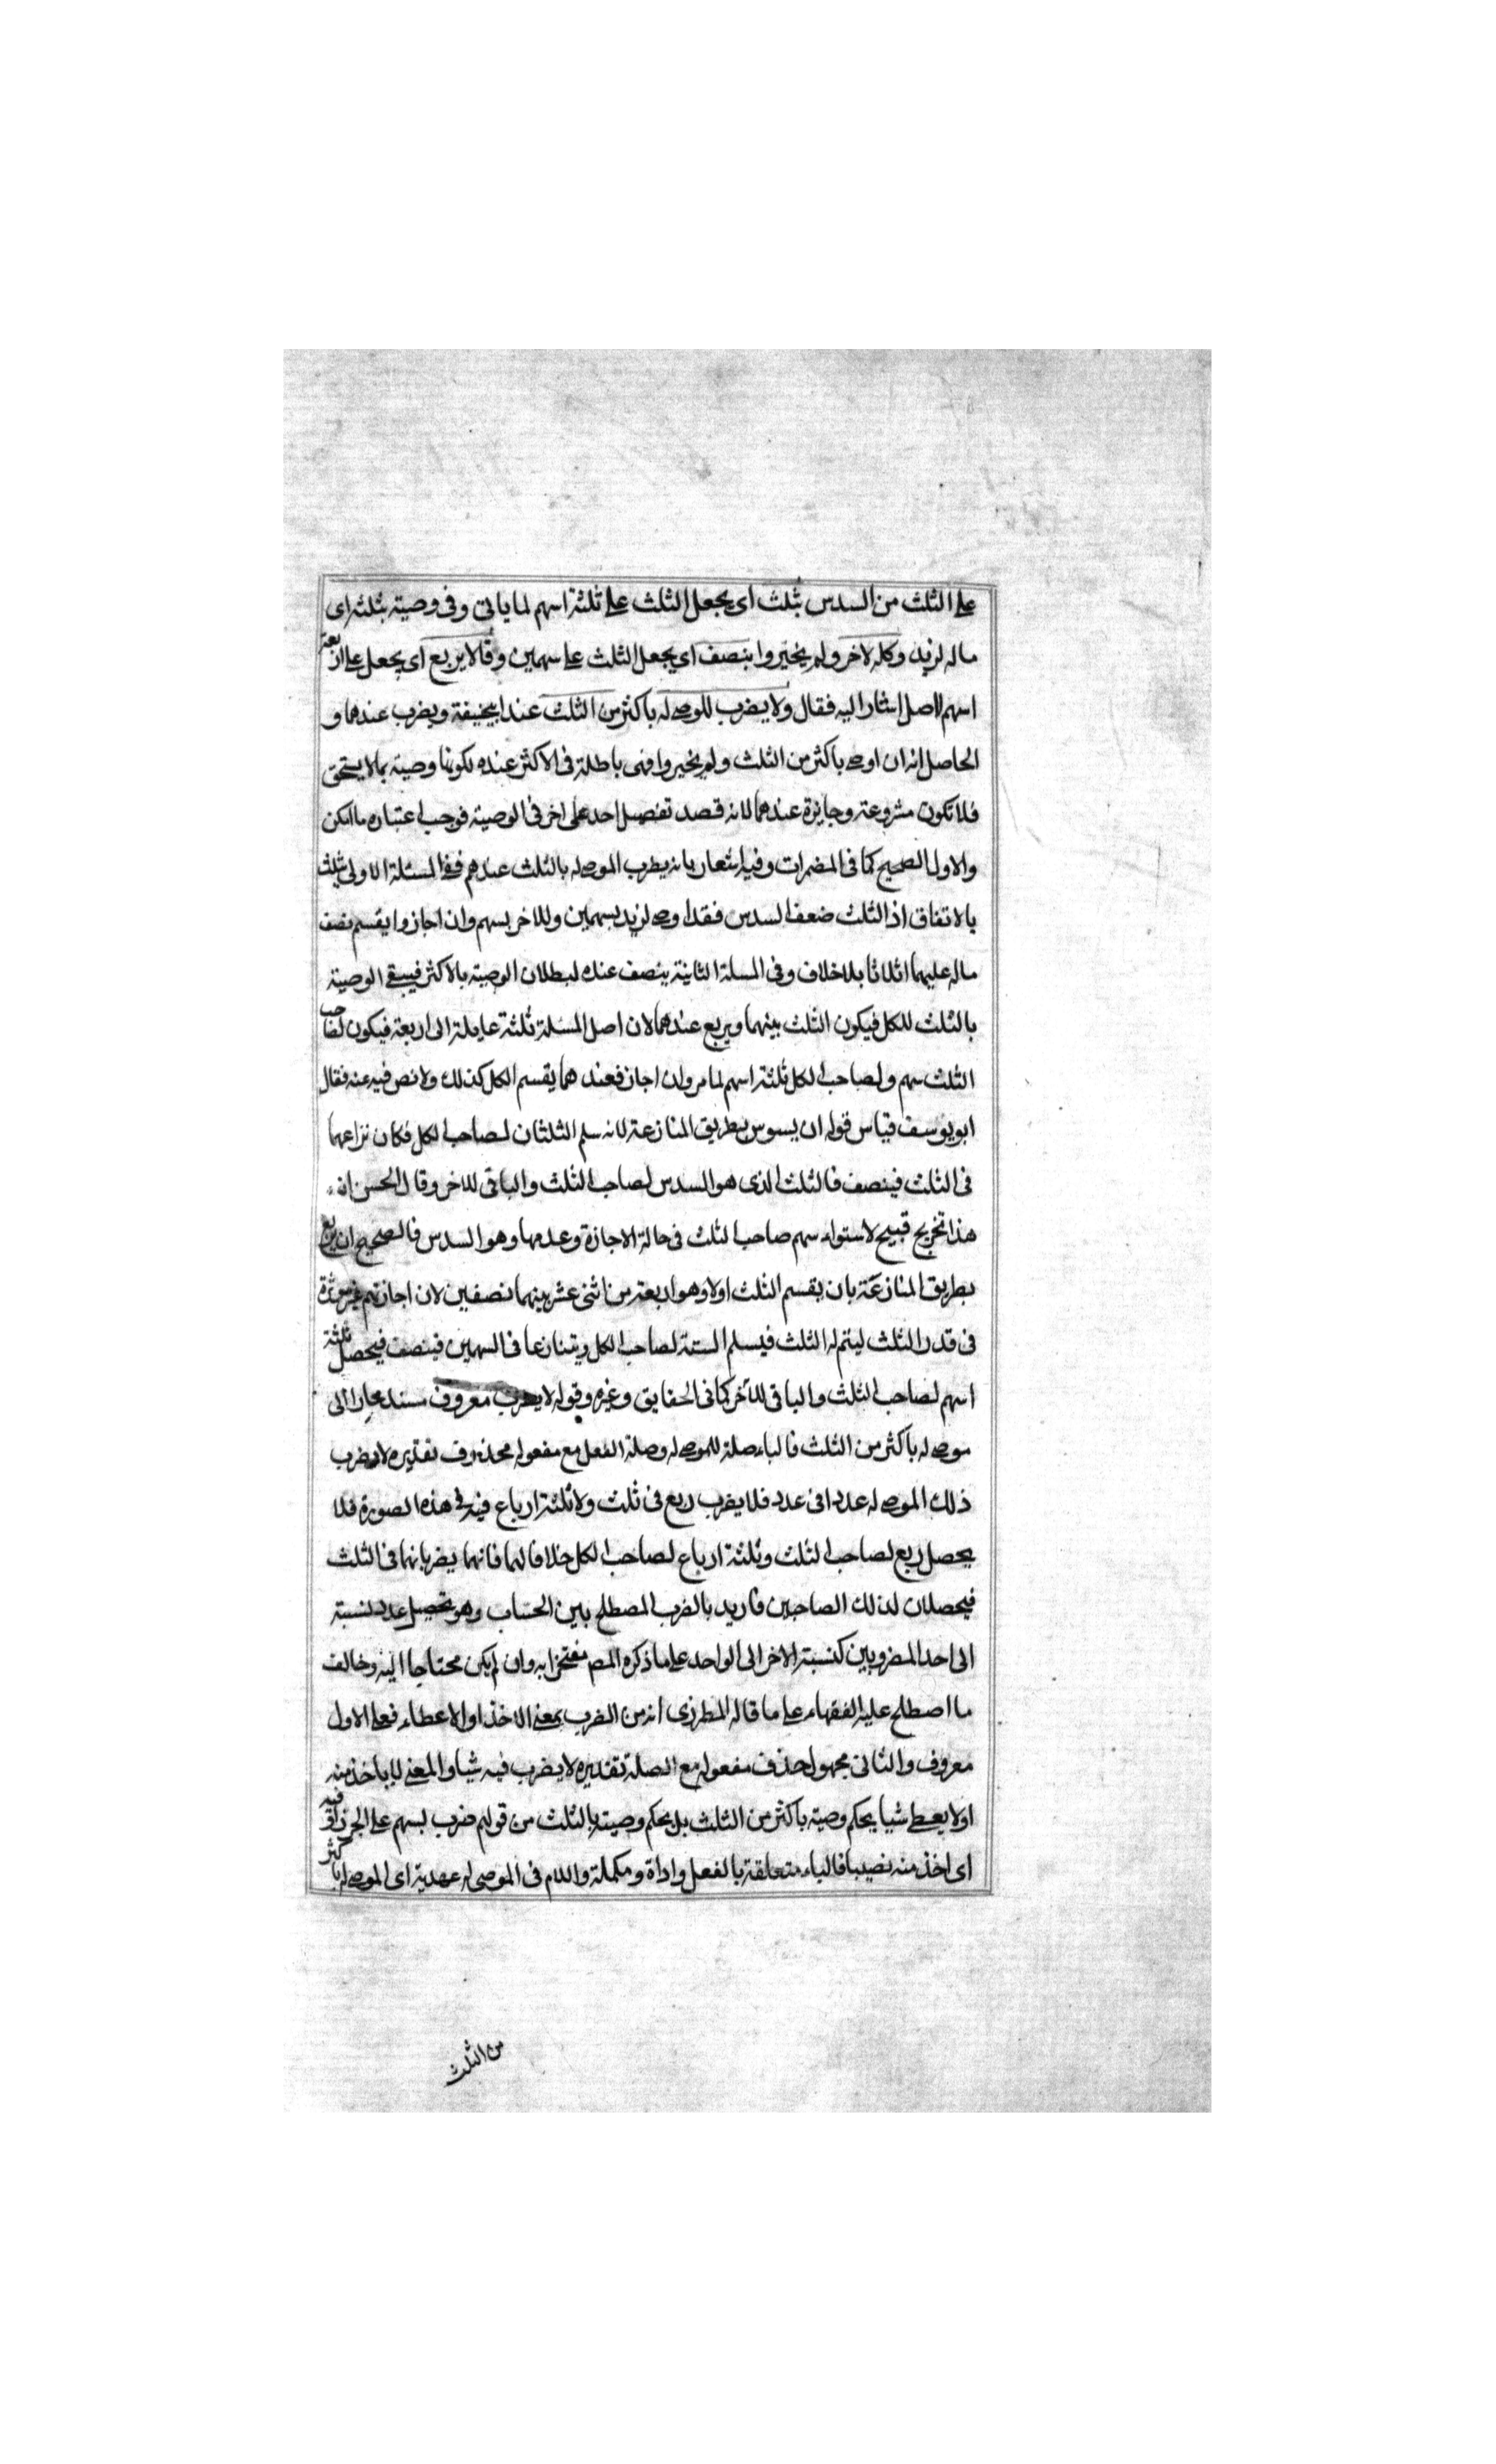 على الثلث من السدس بثلث اى يجعل الثلث على ثلثة اسهم لما ياتى وفى وصية بثلثه اى
ماله لزيد وكله لاخر ولم يخيروا بنصف اى يجعل الثلث على سهمين وقالا يربع اى يجعل على اربعة
اسهم لاصل اشار اليه فقال ولا يضرب للموصى له باكثر من الثلث عند ابيحنيفة ويضرب عندهما و
الحاصل انه ان اوصى باكثر من الثلث ولم يخيروا فهى باطلة فى الاكثر عنده لكونها وصية بما لا يستحق
فلا تكون مشروعة وجايزة عندهما لانه قصد تفضيل احد على اخر فى الوصية فوجب اعتباره ما امكن
والاول الصحيح كما فى المضمرات وفيه اشعار بانه يطرب الموصى له بالثلث عندهم ففى المسئلة الاولى يثلث
بالاتفاق اذ الثلث ضعف السدس فقد اوصى لزيد بسهمين وللاخر بسهم وان اجازوا يقسم نصف
ماله عليهما اثلاثا بلا خلاف وفى المسلة الثانية ينصف عنده لبطلان الوصية بالاكثر فيبقى الوصية
بالثلث للكل فيكون الثلث بينهما ويربع عندهما لان اصل المسئلة ثلثة عايلة الى اربعة فيكون لصاحب
الثلث سهم ولصاحب الكل ثلثة اسهم لما مر وان اجاز فعندهما يقسم الكل كذلك ولا نص فيه عنه فقال
ابو يوسف قياس قوله ان يسوس بطريق المنازعة لانه سلم الثلثان لصاحب الكل فكان نزاعهما
فى الثلث فينصف فالثلث الذى هو السدس لصاحب الثلث والباقى للاخر وقال الحسن انه
هذا تخريج قبيح لاستواء سهم صاحب الثلث فى حالة الاجازة وعدمها وهو السدس فالصحيح ان يربع
بطريق المنازعة بان يقسم الثلث اولا وهو اربعة من اثنى عشر بينهما نصفين لان اجازتهم غير مؤثرة
فى قدر الثلث ليتم له الثلث فيسلم الستة لصاحب الكل ويتنازعا فى السهمين فينصف فيحصل ثلثة
اسهم لصاحب الثلث والباقى للآخر كما فى الحقايق وغيره وقوله لا يضرب معروف مسند مجازا الى
موصى له باكثر من الثلث فالباء صلة للموصى له وصلة الفعل مع مفعوله محذوف تقديره لا يضرب
ذلك الموصى له عددا فى عدد فلا يضرب ربع فى ثلث ولا ثلثة ارباع فيه فى هذه الصورة فلا
يحصل ربع لصاحب الثلث وثلثة ارباع لصاحب الكل خلافا لهما فانهما يضربانهما فى الثلث
فيحصلان لذلك الصاحبين فاريد بالضرب المصطلح بين الحساب وهو تحصيل عدد نسبته
الى احد المضروبين كنسبة الاخر الى الواحد على ما ذكره المص مفتخرا به وان لم يكن محتاجا اليه وخالف
ما اصطلح عليه الفقهاء على ما قاله المطرزى انه من الضرب بمعنى الاخذ او الاعطاء فعلى الاول
معروف والثانى مجهول حذف مفعوله مع الصلة تقديره لا يضرب فيه شيا والمعنى لا ياخذ منه
او لا يعطى شيا بحكم وصية باكثر من الثلث بل بحكم وصيته بالثلث من قولهم ضرب بسهم على الجزور فيه
اى اخذ منه نصيبا فالباء متعلقة بالفعل واداة ومكملة واللام فى الموصى له عهدية اى الموصى له باكثر
من الثلث